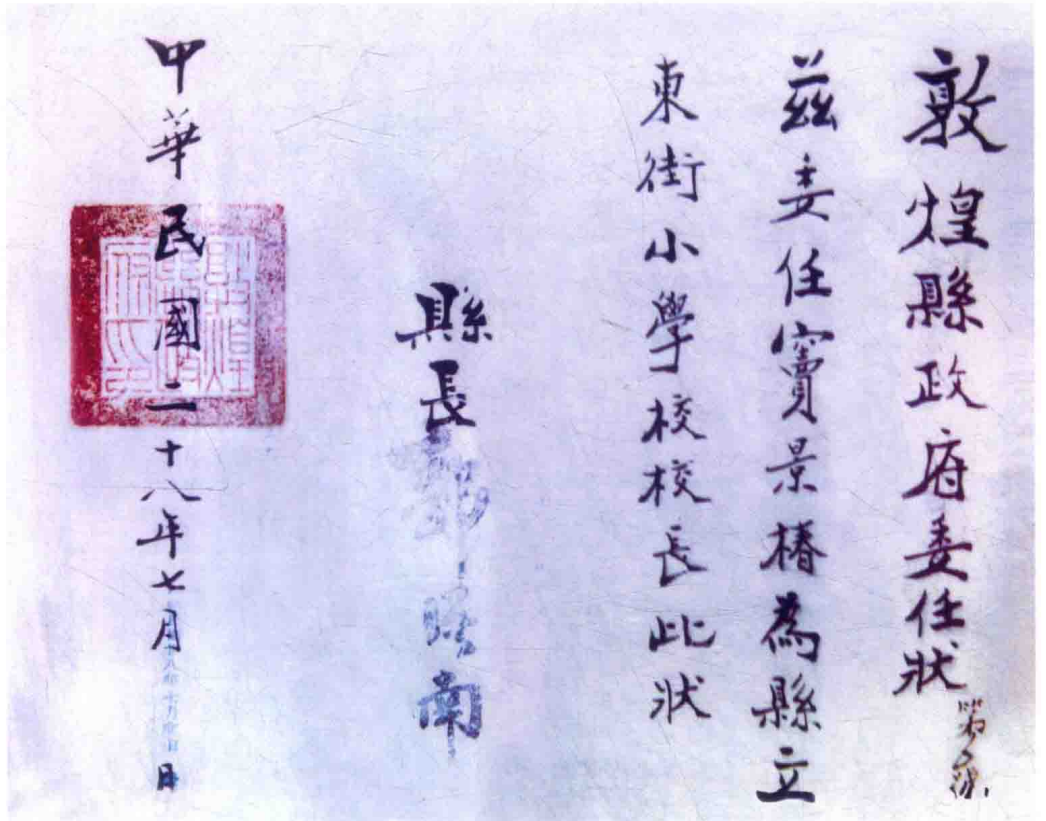 敦煌縣政府委任狀
茲委任竇景椿為縣立
東街小學校校長此狀
縣長
南
中華民國二十八年七月 日